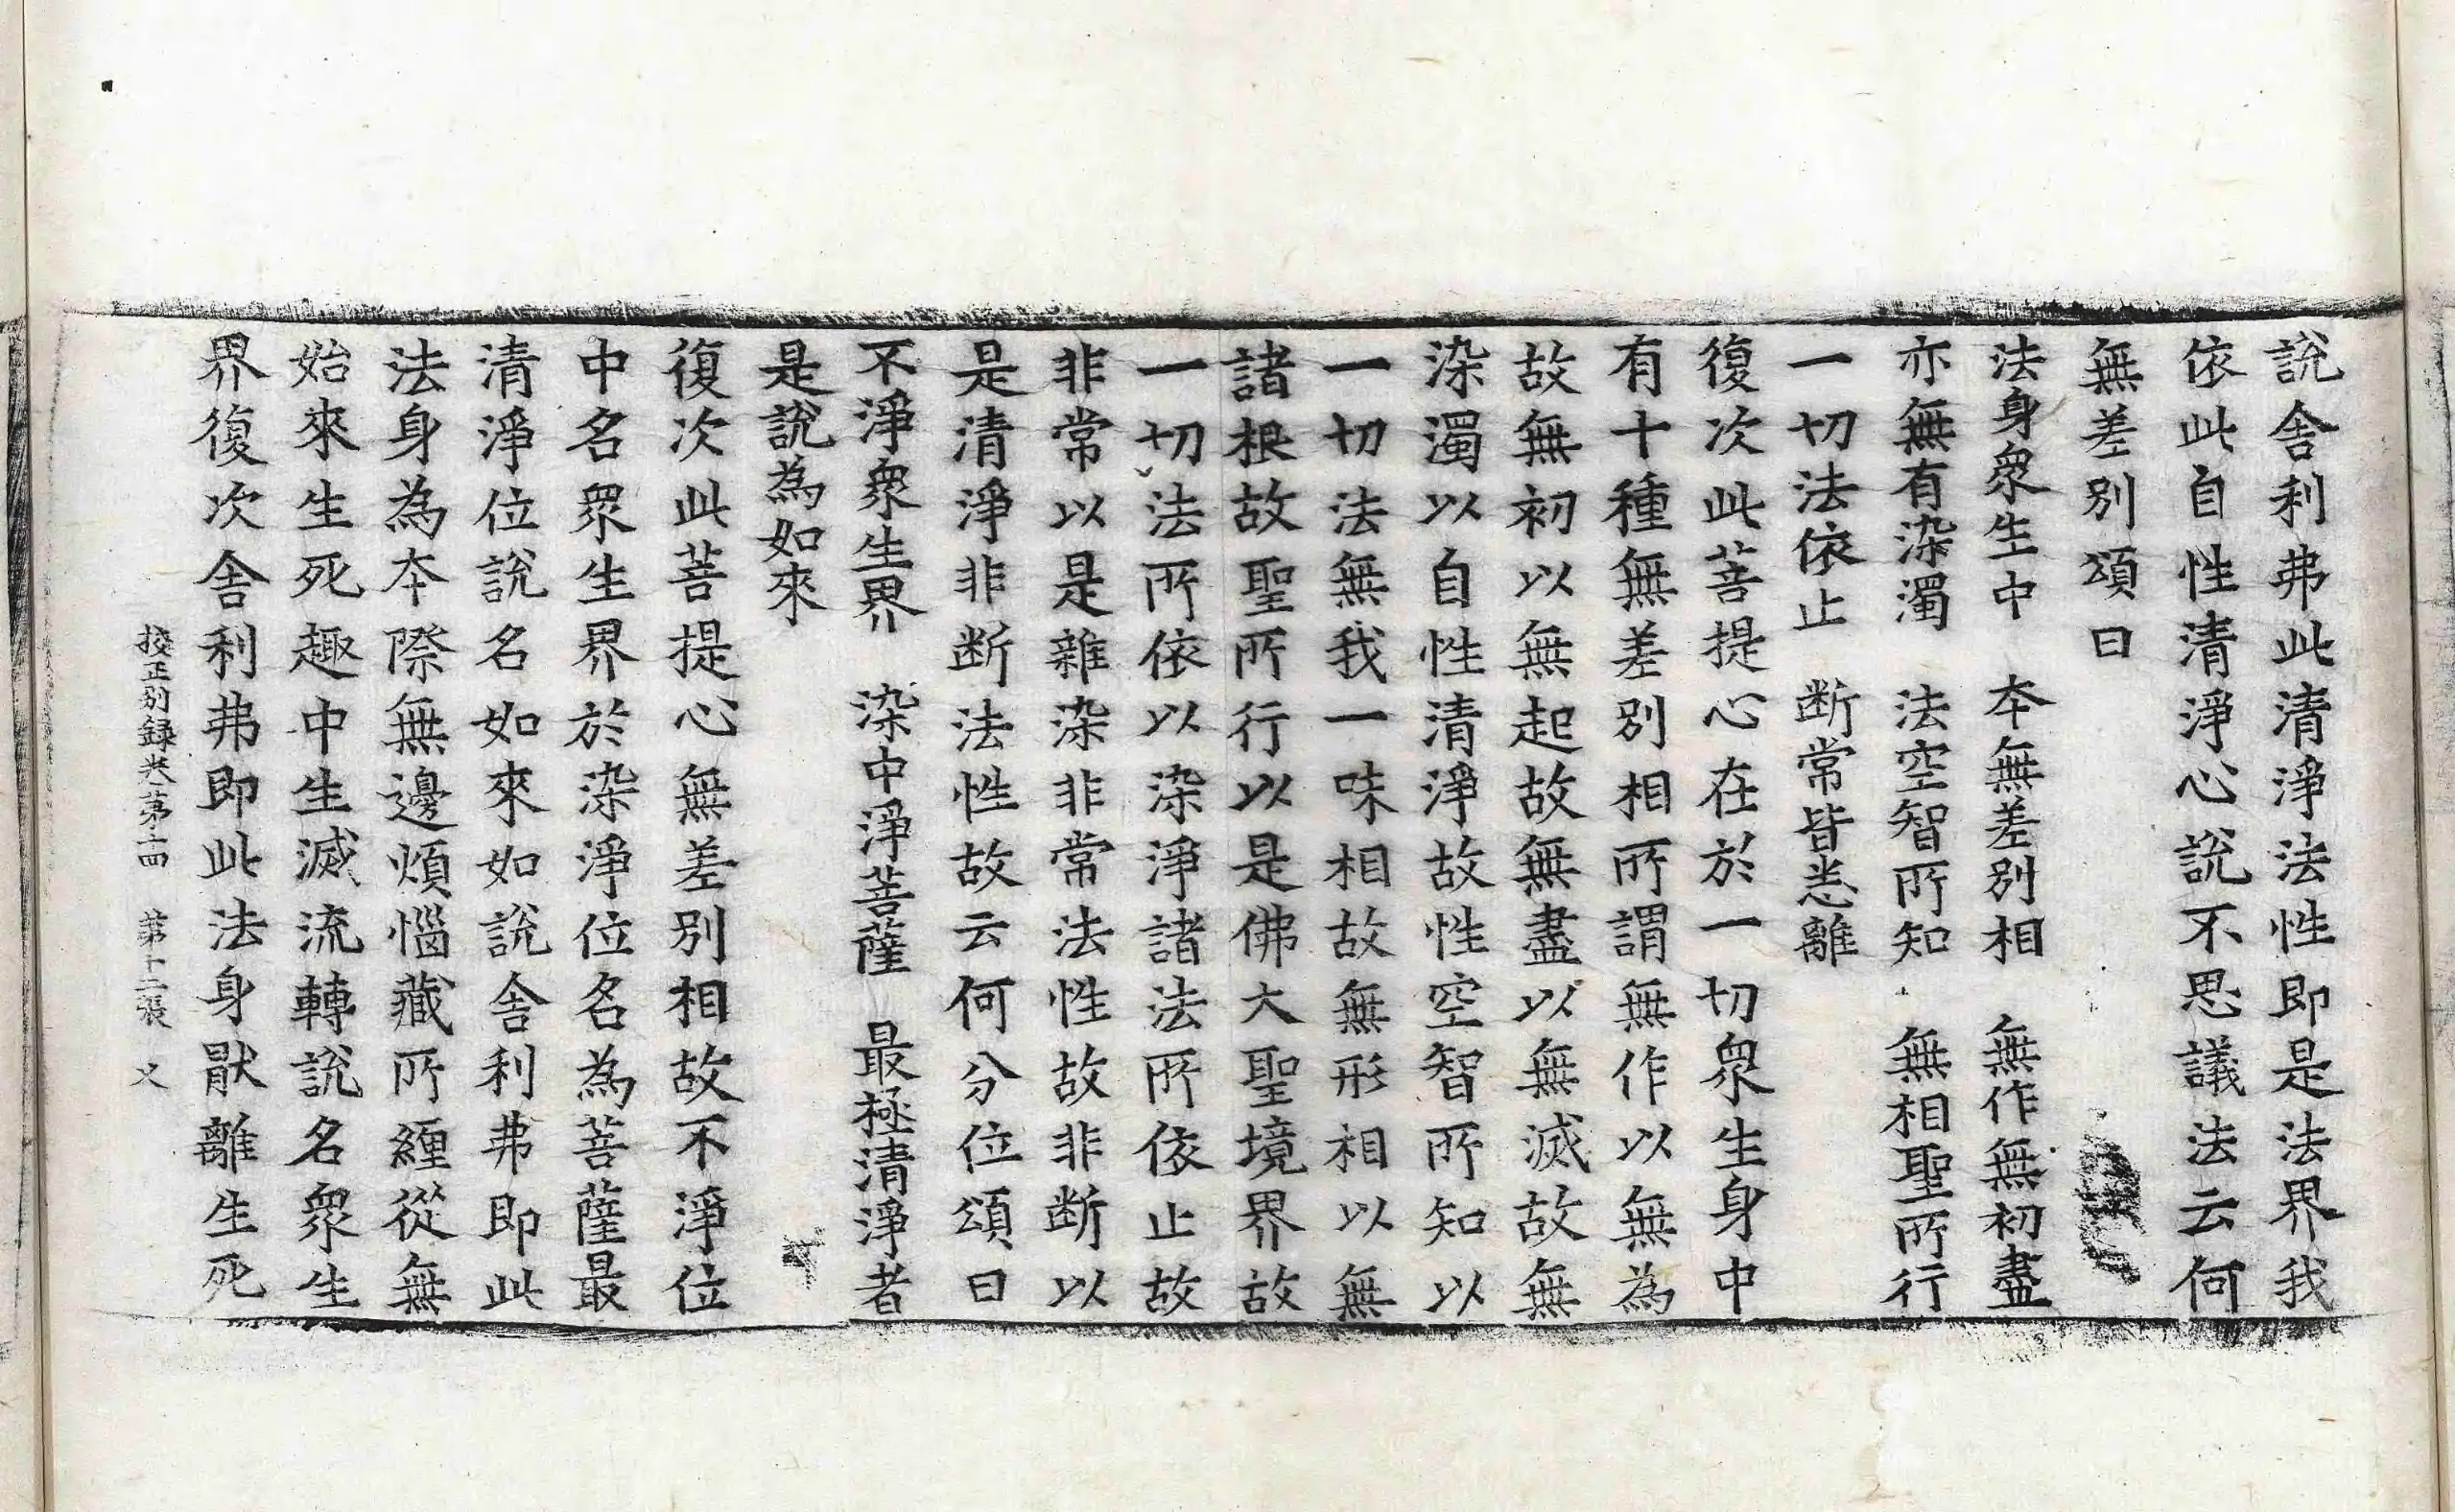 說舍利弗此清淨法性即是法界我
依此自性清淨心說不思議法云何
無差別頌曰
法身衆生中　本無差別相　無作無初盡
亦無有染濁　法空智所知　無相聖所行
一切法依止　断常皆悉離
復次此菩提心在於一切衆生身中
有十種無差別相所謂無作以無為
故無初以無起故無盡以無滅故無
染濁以自性清淨故性空智所知以
一切法無我一味相故無形相以無
諸根故聖所行以是佛大聖境界故
一切法所依以染淨諸法所依止故
非常以是雜染非常法性故非断以
是清淨非断法性故云何分位頌曰
不淨衆生界　染中淨菩薩　最極清淨者
是說為如來
復次此菩提心無差別相故不淨位
中名衆生界於染淨位名為菩薩最
清淨位說名如來如說舍利弗即此
法身為本際無邊煩惱藏所纏從無
始來生死趣中生滅流轉說名衆生
界復次舍利弗即此法身猒離生死
校正別録卷第十四　第十二張　乂